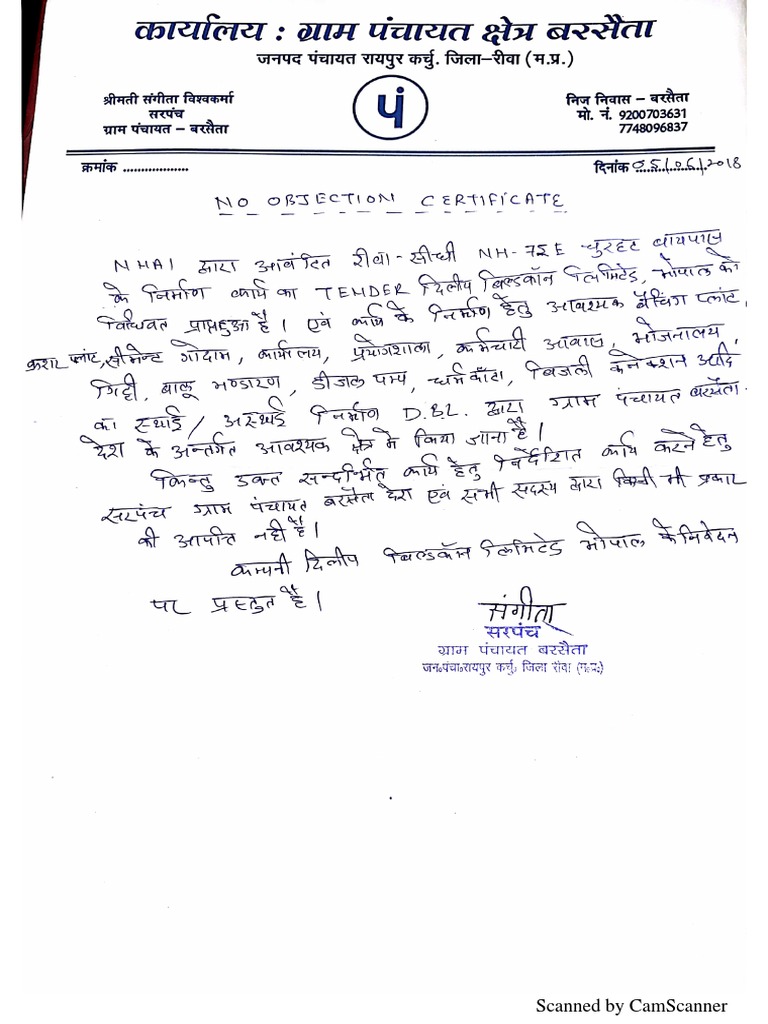 कार्यालय : ग्राम पंचायत क्षेत्र बरसैता
जनपद पंचायत रायपुर कर्चु. जिला–रीवा (म.प्र.)
श्रीमती संगीता विश्वकर्मा
सरपंच
ग्राम पंचायत – बरसैता
पं
निज निवास – बरसैता
मो. नं. 9200703631
7748096837
क्रमांक ..................
दिनांक 05/06/2018
NO OBJECTION CERTIFICATE
NHAI द्वारा आवंटित रीवा - सीधी NH-75E चुरहट बायपास
के निर्माण कार्य का TENDER दिलीप बिल्डकॉन लिमिटेड, भोपाल को
विधिवत प्राप्त हुआ है। एवं कार्य के निर्माण हेतु आवश्यक बैचिंग प्लांट,
प्लांट, सीमेन्ट गोदाम, कार्यालय, प्रयोगशाला, कर्मचारी आवास, भोजनालय,
गिट्टी, बालू भण्डारण, डीजल पम्प, धर्मकाँटा, बिजली कनेक्शन आदि
का स्थाई / अस्थाई निर्माण D.B.L. द्वारा ग्राम पंचायत बरसैता
के अन्तर्गत आवश्यक क्षेत्र में किया जाना है।
किन्तु उक्त सन्दर्भित कार्य हेतु निर्देशित कार्य करने हेतु
सरपंच ग्राम पंचायत बरसैता एवं सभी सदस्य द्वारा किसी भी प्रकार
की आपत्ति नहीं है।
कम्पनी दिलीप बिल्डकॉन लिमिटेड भोपाल के निवेदन
पर प्रस्तुत है।
संगीता
सरपंच
ग्राम पंचायत बरसैता
जन०पंचा०रायपुर कर्चु, जिला रीवा (म.प्र.)
Scanned by CamScanner